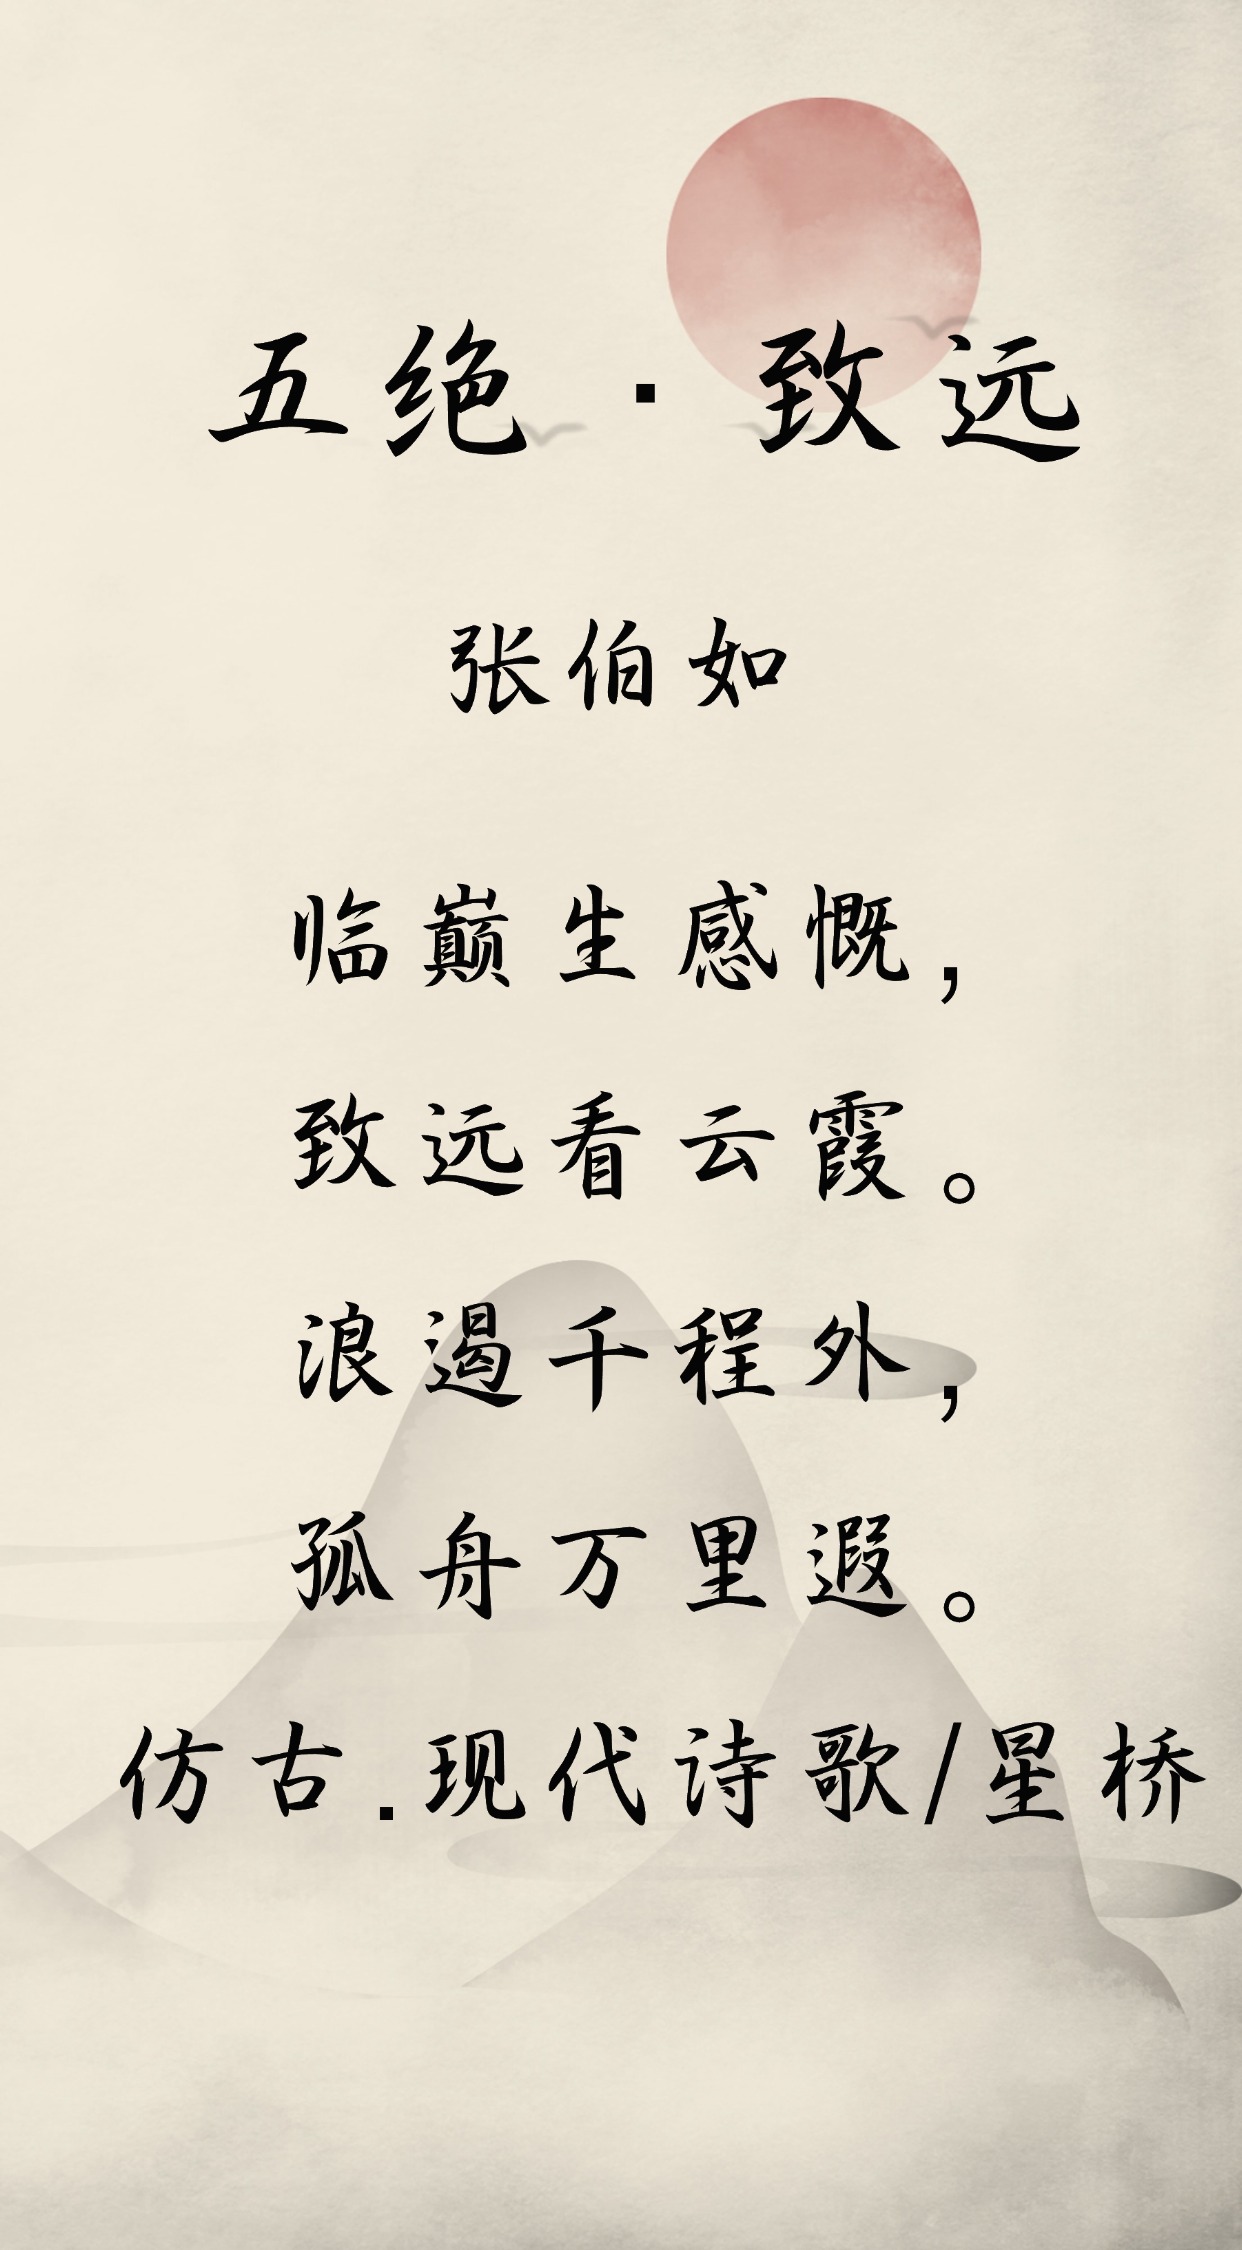 五绝·致远
张伯如
临巅生感慨，
致远看云霞。
浪遏千程外，
孤舟万里遐。
仿古.现代诗歌/星桥